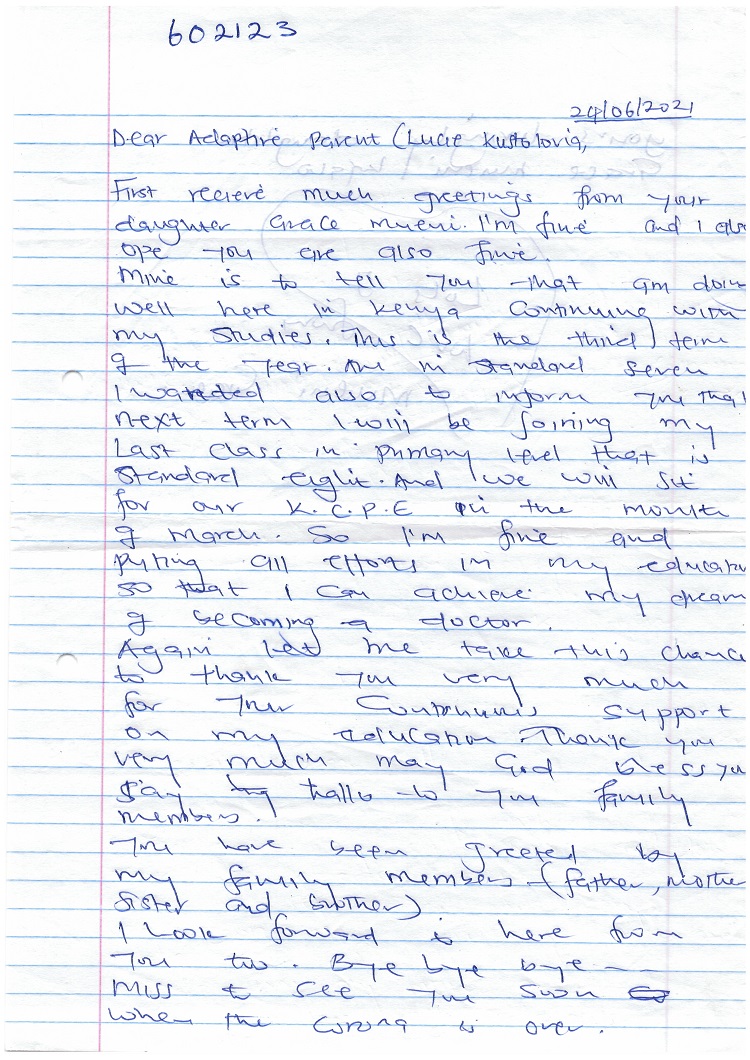 602123
24/06/2021
Dear Adaphire Parent (Lucie Kustolovia,
First recieve much greetings from your
daughter Grace mueni. I'm fine and I also
ope you are also fine.
Mine is to tell you that am doin
well here in Kenya Continuing with
my studies. This is the third term
of the year. Am in Standard seven
I wanted also to inform you that
next term I will be joining my
Last class in primary level that is
Standard eight. And we will sit
for our K.C.P.E in the month
of march. So I'm fine and
puting all efforts in my education
so that I can achieve my dream
of becoming a doctor.
Again let me take this chance
to thank you very much
for your Continuous support
on my education. Thank you
very much may God bless you
Say hallo to your family
members.
You have been greeted by
my family members (father, mother
sister and brother)
I Look forward to here from
you too. Bye bye bye ---
Miss to see you soon
when the corona is over.